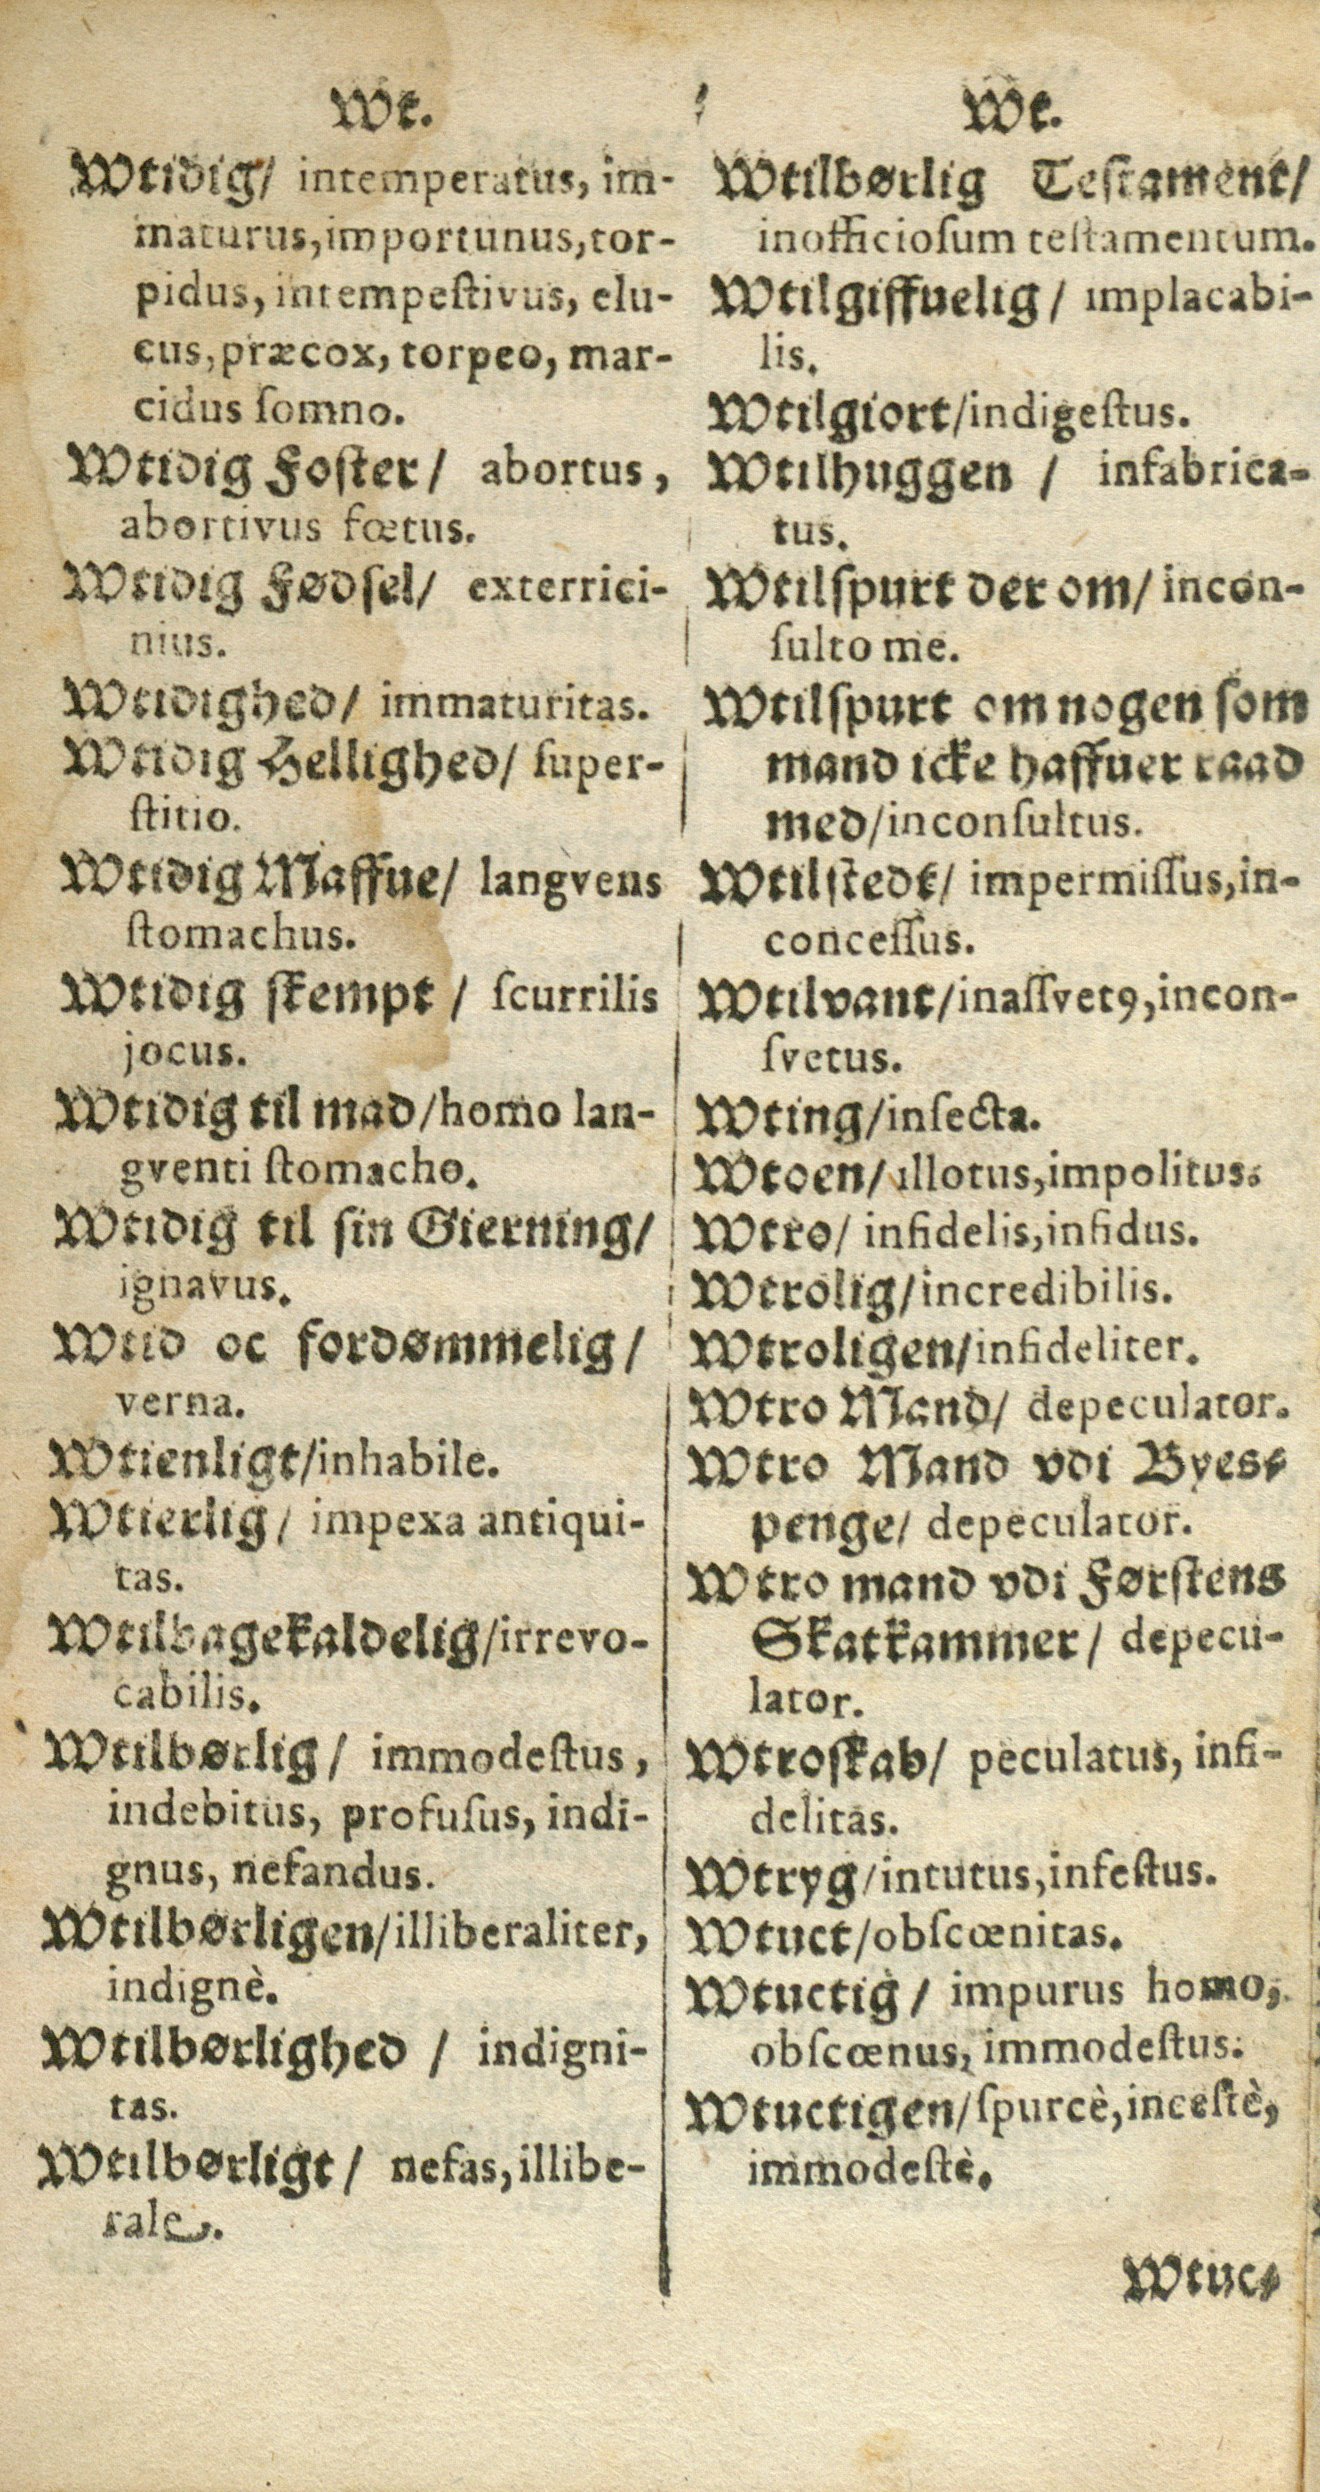 Wt.
Wtidig/ intemperatus, im-
maturus,importunus,tor-
pidus, intempeſtivus, elu-
cus,præcox, torpeo, mar-
cidus ſomno.
Wtidig Foſter/ abortus,
abortivus fœtus.
Wtidig Fødſel/ exterrici-
nius.
Wtidighed/ immaturitas.
Wtidig Hellighed/ ſuper-
ſtitio.
Wtidig Maffue/ langvens
ſtomachus.
Wtidig ſkempt / ſcurrilis
jocus.
Wtidig til mad/homo lan-
gventi ſtomacho.
Wtidig til ſin Gierning/
ignavus.
Wtid oc fordømmelig/
verna.
Wtienligt/inhabile.
Wtierlig/ impexa antiqui-
tas.
Wtilbagekaldelig/irrevo-
cabilis.
Wtilbørlig/ immodeſtus,
indebitus, profuſus, indi-
gnus, nefandus.
Wtilbørligen/illiberaliter,
indignè.
Wtilbørlighed / indigni-
tas.
Wtilbørligt/ nefas, illibe-
rale.
Wt.
Wtilbørlig Teſtament/
inofficioſum teſtamentum.
Wtilgiffuelig/ implacabi-
lis.
Wtilgiort/indigeſtus.
Wtilhuggen / infabrica-
tus.
Wtilſpurt der om/ incon-
ſulto me.
Wtilſpurt om nogen ſom
mand icke haffuer raad
med/inconſultus.
Wtilſtedt/ impermiſſus,in-
conceſſus.
Wtilvant/inaſſvetꝰ,incon-
ſvetus.
Wting/inſecta.
Wtoen/ illotus,impolitus.
Wtro/ infidelis,infidus.
Wtrolig/incredibilis.
Wtroligen/infideliter.
Wtro Mand/ depeculator.
Wtro Mand vdi Byes-
penge/ depeculator.
Wtro mand vdi Førſtens
Skatkammer/ depecu-
lator.
Wtroſkab/ peculatus, infi-
delitas.
Wtryg/intutus,infeſtus.
Wtuct/obſcœnitas.
Wtuctig/ impurus homo,
obſcœnus, immodeſtus.
Wtuctigen/ſpurcè,inceſtè,
immodeſtè.
Wtuc-